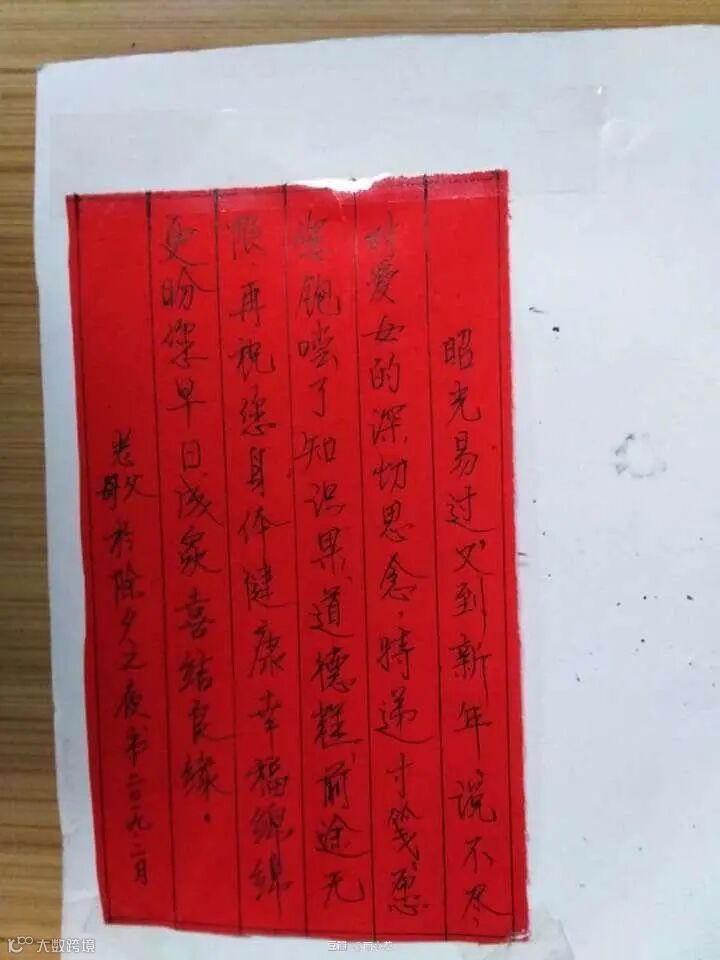 昭光易过又到新年,说不尽
对爱女的深切思念,特递寸笺,愿
您饱尝了知识果,道德糕,前途无
限,再祝您身体健康幸福绵绵
更盼您早日成家喜结良缘。
老父母於除夕之夜书二〇一九二月
大数跨境